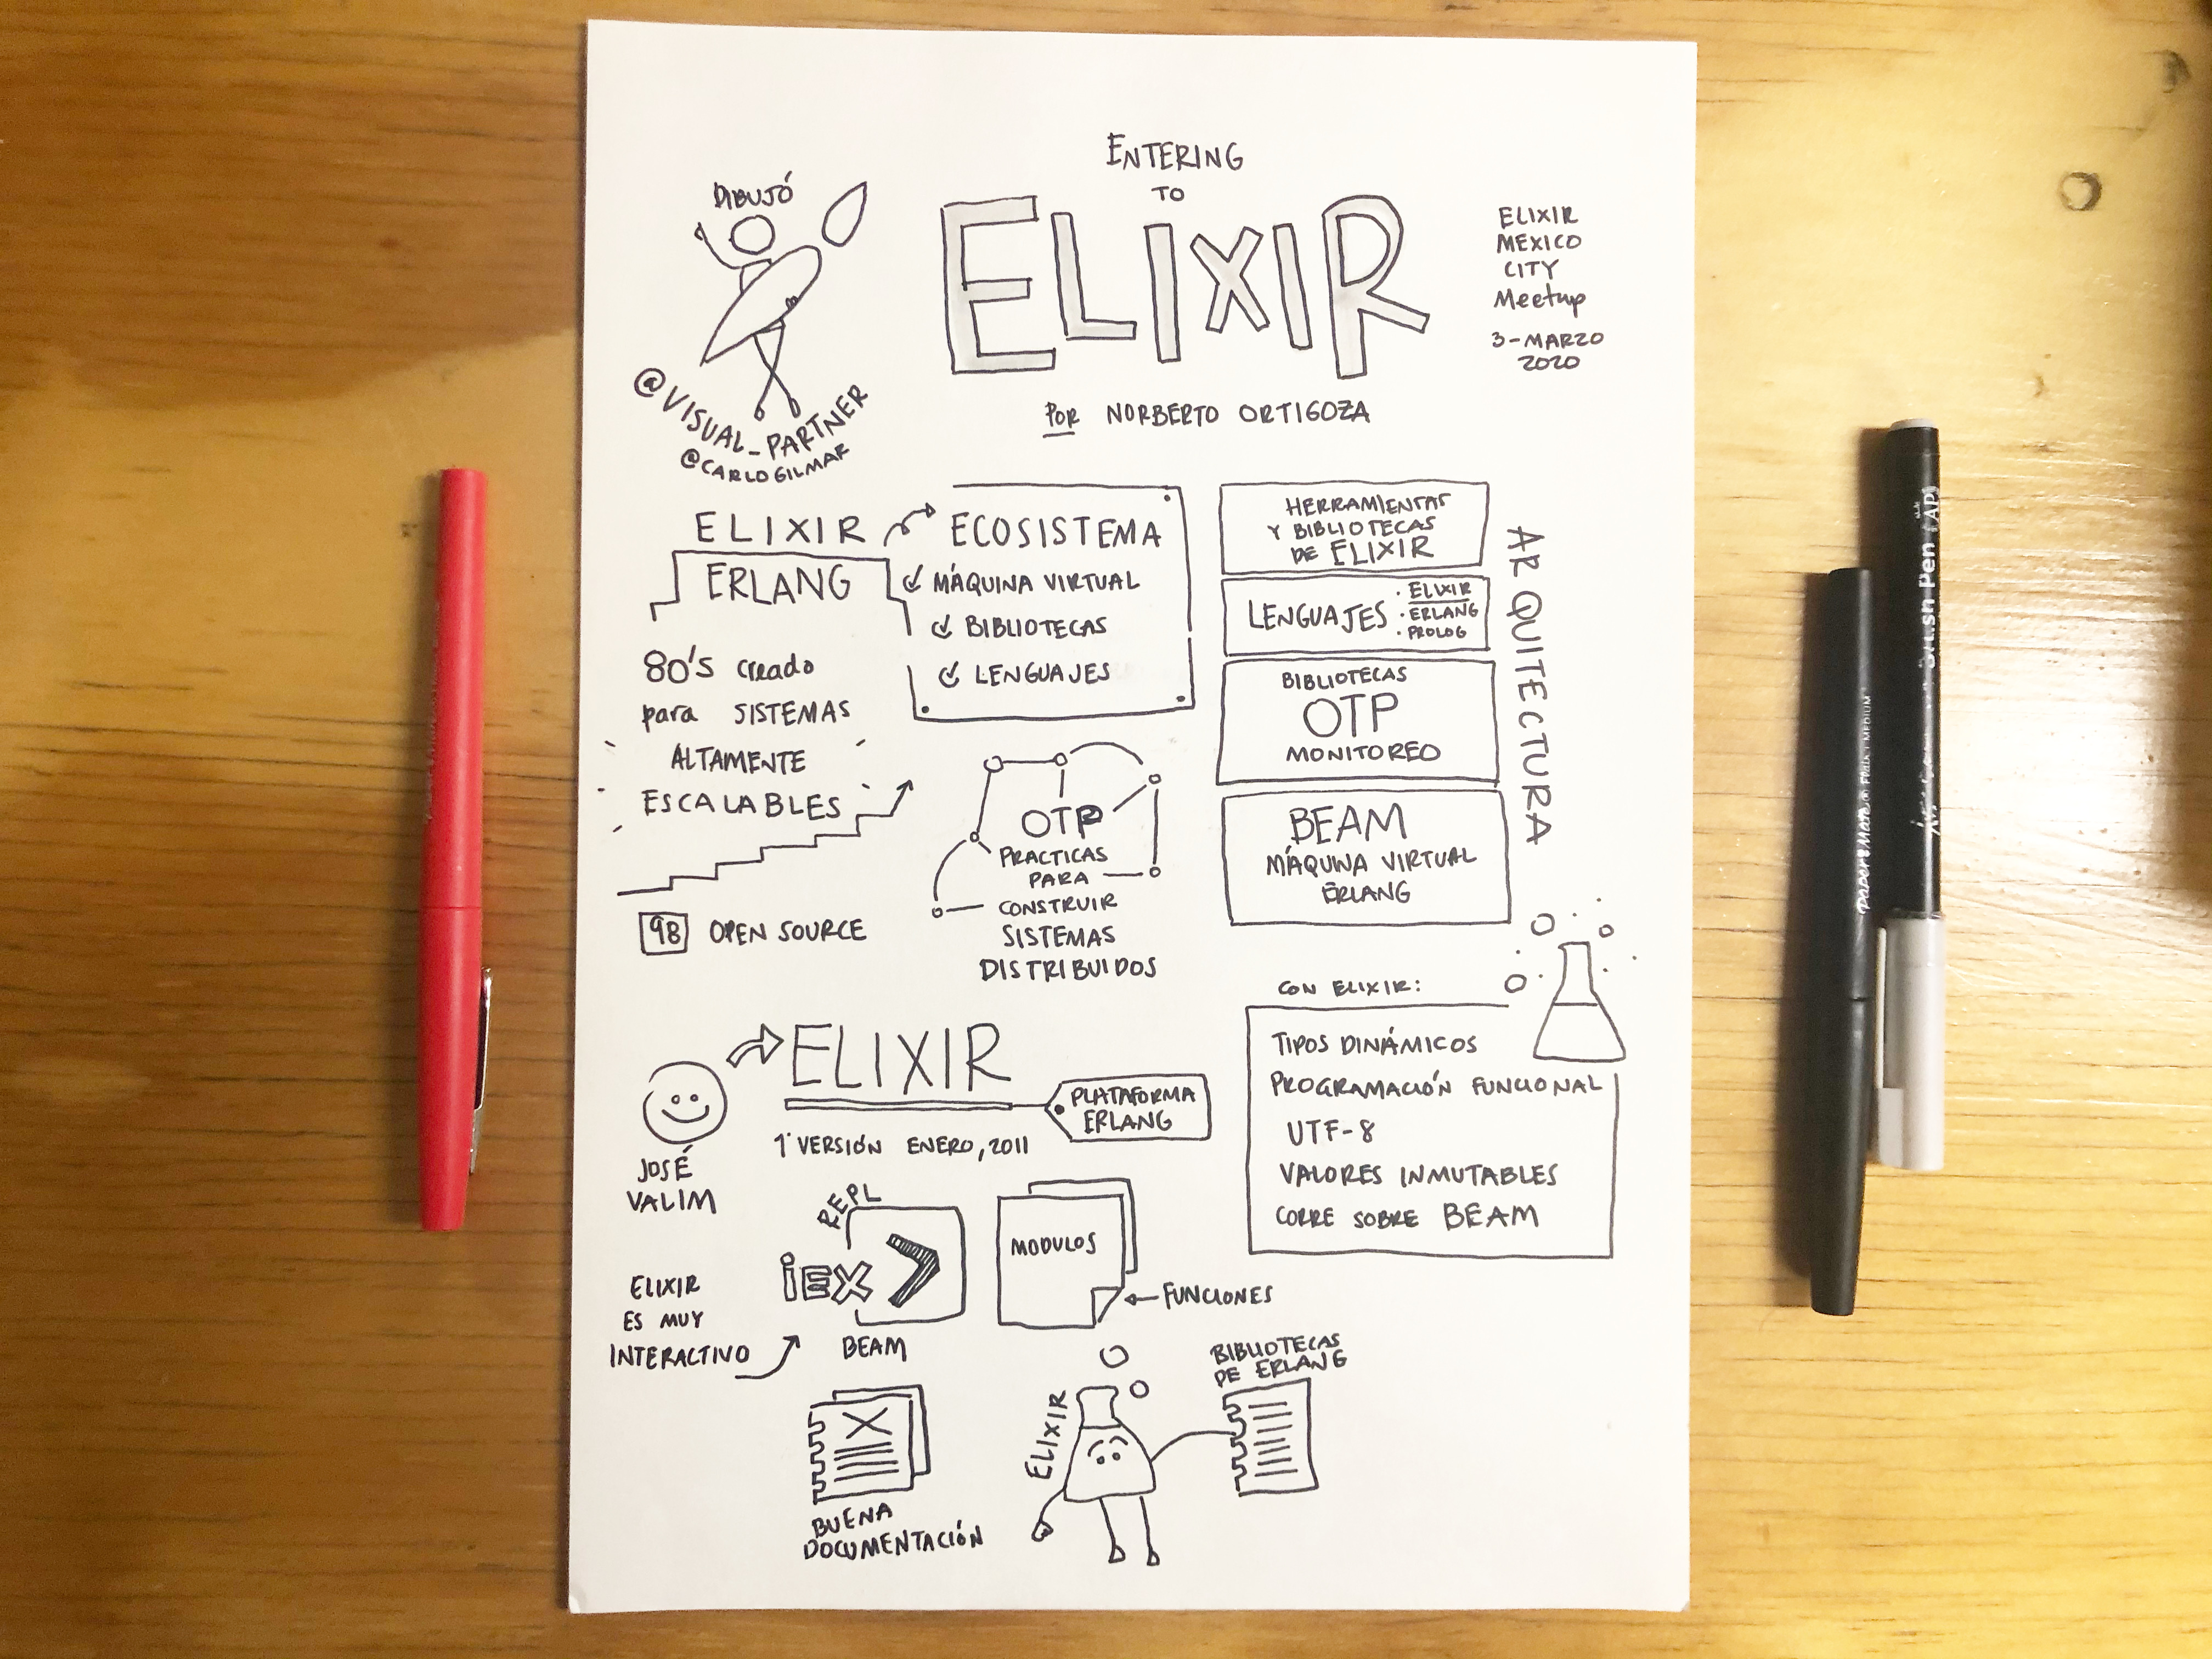 DIBUJÓ
@VISUAL_PARTNER
@CARLOGILMAR
ENTERING
TO
ELIXIR
POR NORBERTO ORTIGOZA
ELIXIR
MEXICO
CITY
Meetup
3-MARZO
2020
ELIXIR
ERLANG
80's creado
para SISTEMAS
ALTAMENTE
ESCALABLES
98 OPEN SOURCE
ECOSISTEMA
MÁQUINA VIRTUAL
BIBLIOTECAS
LENGUAJES
OTP
PRACTICAS
PARA
CONSTRUIR
SISTEMAS
DISTRIBUIDOS
HERRAMIENTAS
Y BIBLIOTECAS
DE ELIXIR
LENGUAJES
· ELIXIR
· ERLANG
· PROLOG
BIBLIOTECAS
OTP
MONITOREO
BEAM
MÁQUINA VIRTUAL
ERLANG
ARQUITECTURA
JOSÉ
VALIM
ELIXIR
PLATAFORMA
ERLANG
1° VERSIÓN ENERO, 2011
CON ELIXIR:
TIPOS DINÁMICOS
PROGRAMACIÓN FUNCIONAL
UTF-8
VALORES INMUTABLES
CORRE SOBRE BEAM
ELIXIR
ES MUY
INTERACTIVO
REPL
iEX >
BEAM
MODULOS
FUNCIONES
BUENA
DOCUMENTACIÓN
ELIXIR
BIBLIOTECAS
DE ERLANG
Paper Mate
Pen